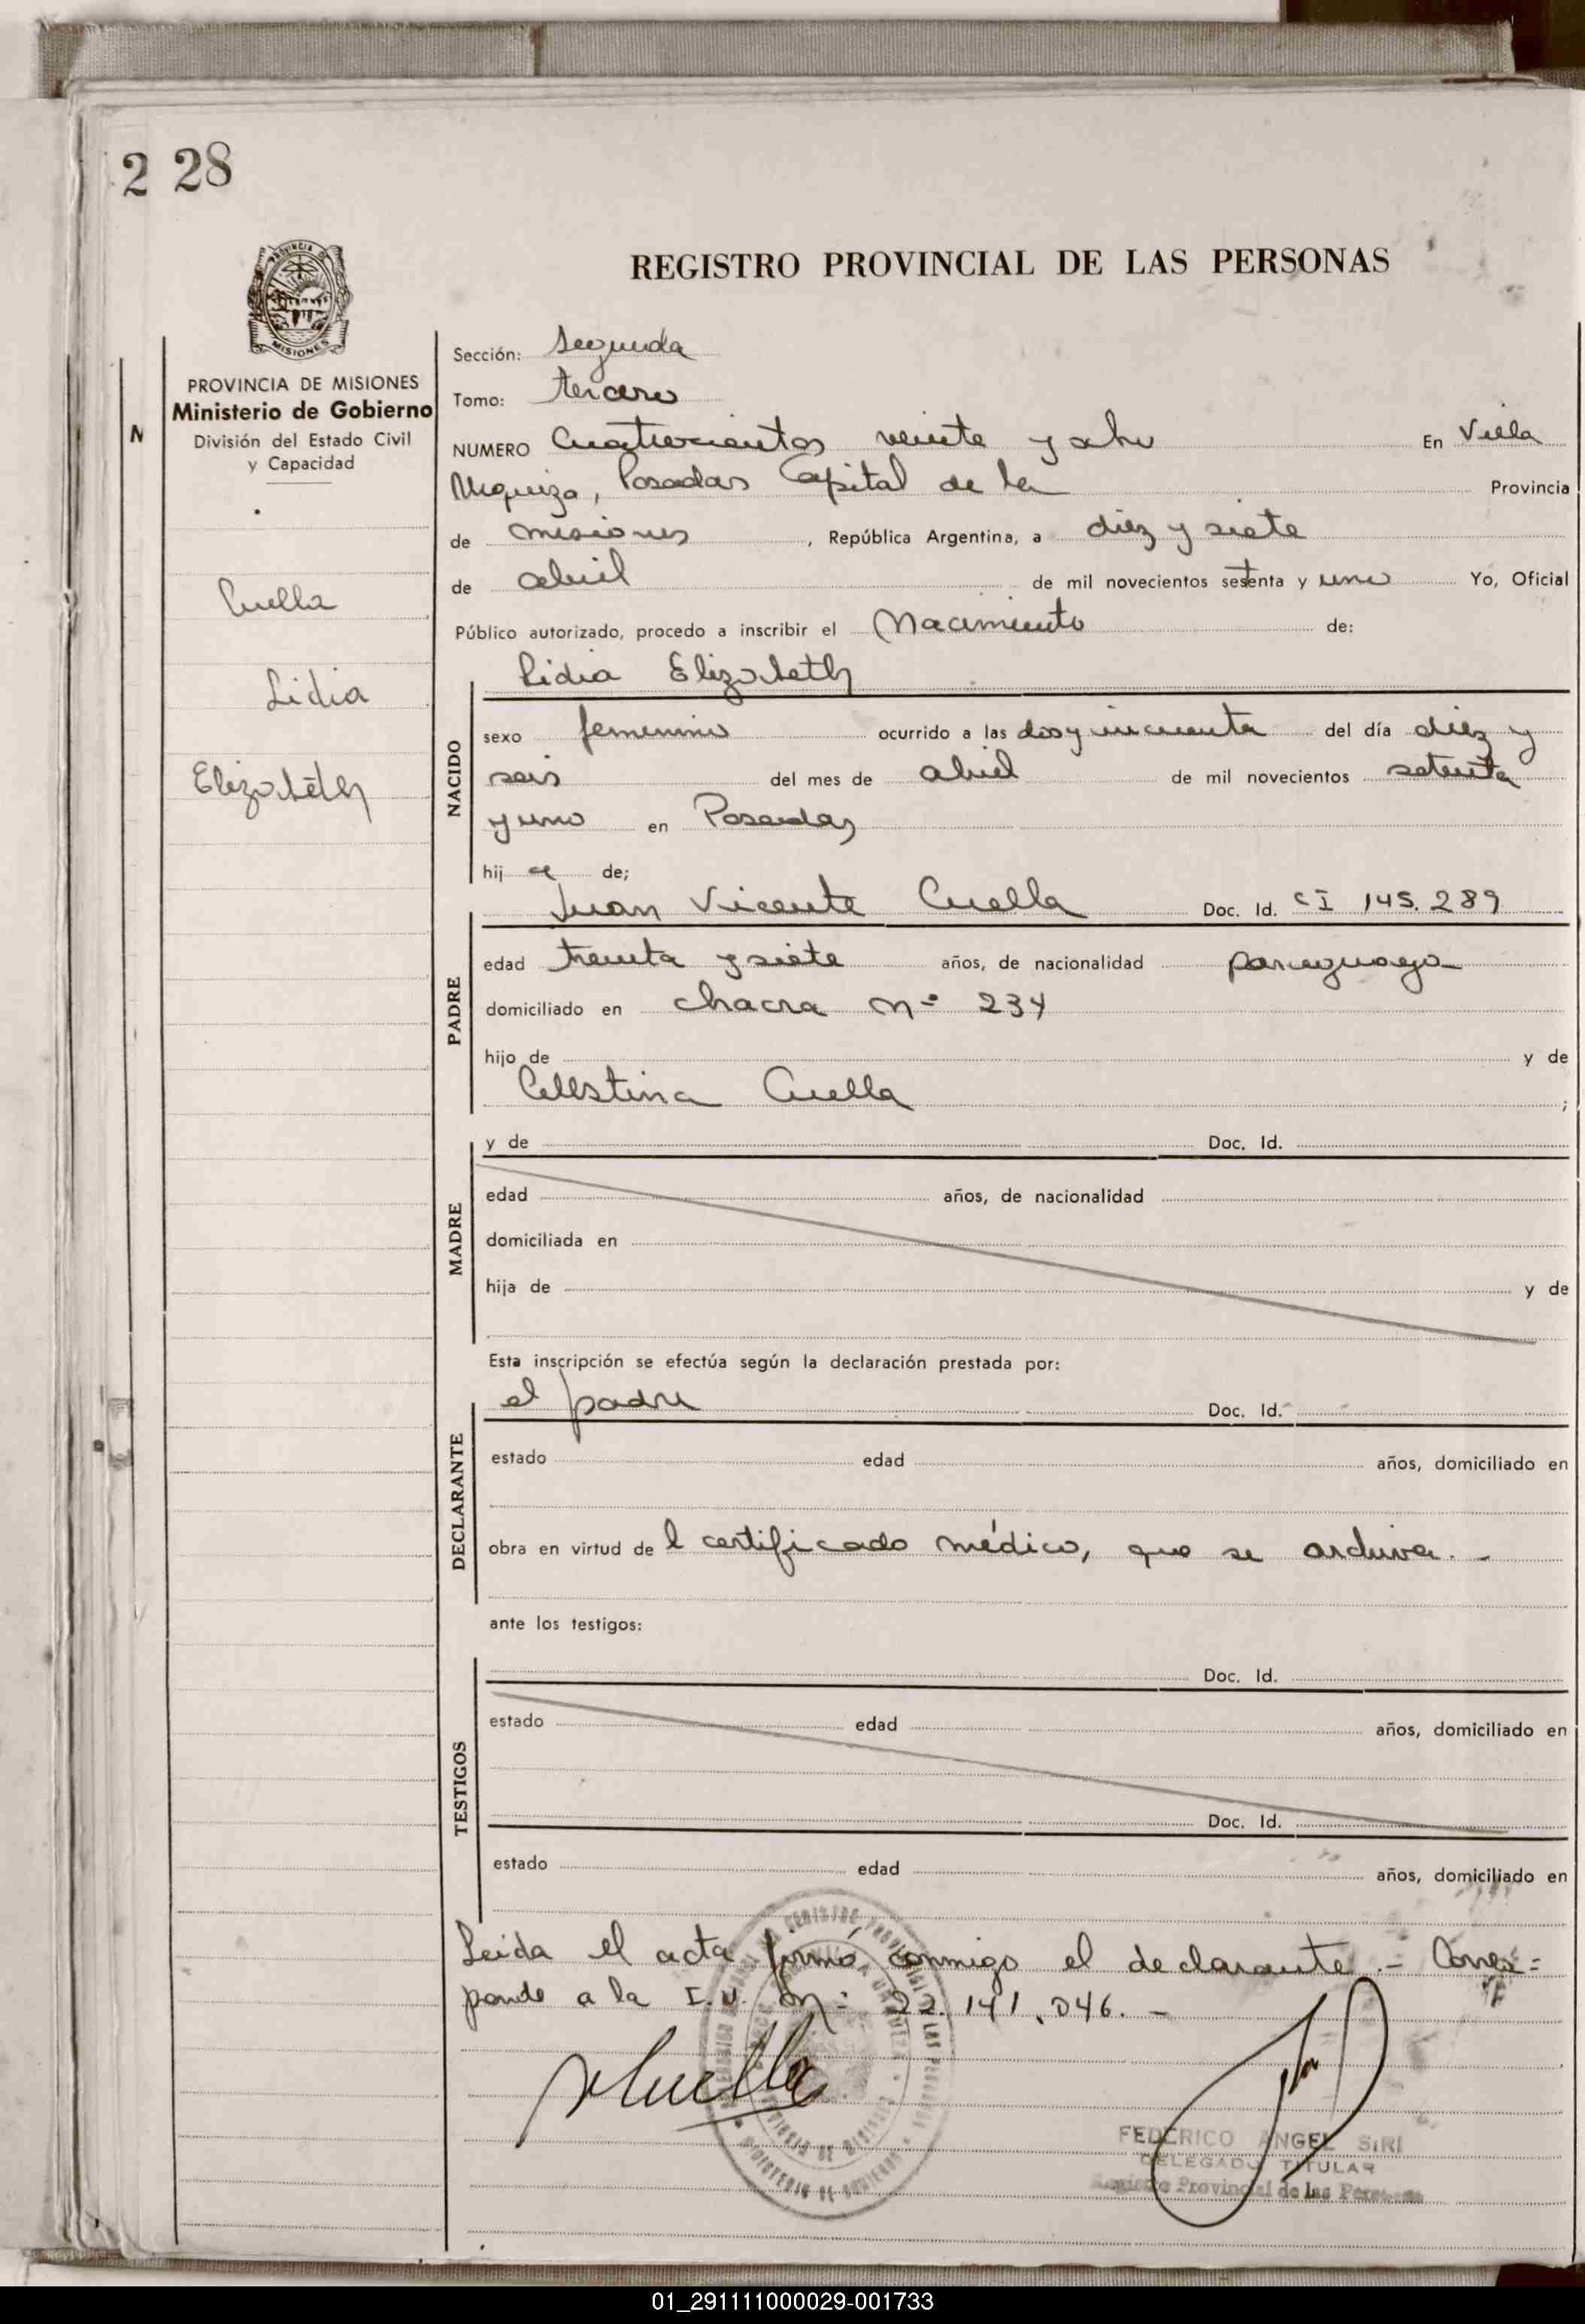 2 28
REGISTRO PROVINCIAL DE LAS PERSONAS
PROVINCIA DE MISIONES
MISIONES
PROVINCIA DE MISIONES
Ministerio de Gobierno
División del Estado Civil
y Capacidad
Cuella
Lidia
Elizabeth
N
Sección: Segunda
Tomo: tercero
NUMERO Cuatrocientos veinte y ocho En Villa
Urquiza, Posadas Capital de la Provincia
de misiones, República Argentina, a diez y siete
de abril de mil novecientos setenta y uno Yo, Oficial
Público autorizado, procedo a inscribir el Nacimiento de:
Lidia Elizabeth
NACIDO
sexo femenino ocurrido a las dos y cincuenta del día diez y
seis del mes de abril de mil novecientos setenta
y uno en Posadas
hij a de;
Juan Vicente Cuella Doc. Id. CI 145.289
PADRE
edad treinta y siete años, de nacionalidad paraguaya
domiciliado en chacra Nº 234
hijo de y de
Celestina Cuella ;
y de Doc. Id.
MADRE
edad años, de nacionalidad
domiciliada en
hija de y de
Esta inscripción se efectúa según la declaración prestada por:
el padre Doc. Id.
DECLARANTE
estado edad años, domiciliado en
obra en virtud de l certificado médico, que se archiva.-
ante los testigos:
Doc. Id.
TESTIGOS
estado edad años, domiciliado en
Doc. Id.
estado edad años, domiciliado en
Leida el acta firmó conmigo el declarante.- Corres=
ponde a la I.U. Nº 22.141.046.-
FEDERICO ANGEL SIRI
DELEGADO TITULAR
Registro Provincial de las Personas
01_291111000029-001733